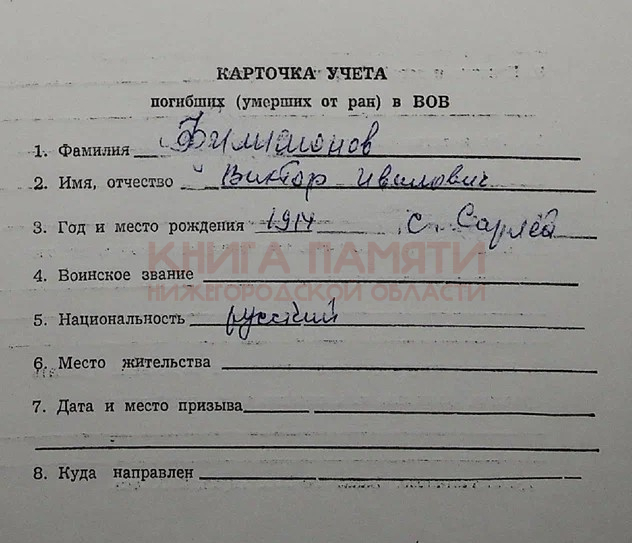 КАРТОЧКА УЧЕТА
погибших (умерших от ран) в ВОВ
1. Фамилия Филимонов
2. Имя, отчество Виктор Иванович
3. Год и место рождения 1914 с. Сарлей
КНИГА ПАМЯТИ
4. Воинское звание
НИЖЕГОРОДСКОЙ ОБЛАСТИ
5. Национальность русский
6. Место жительства
7. Дата и место призыва
8. Куда направлен